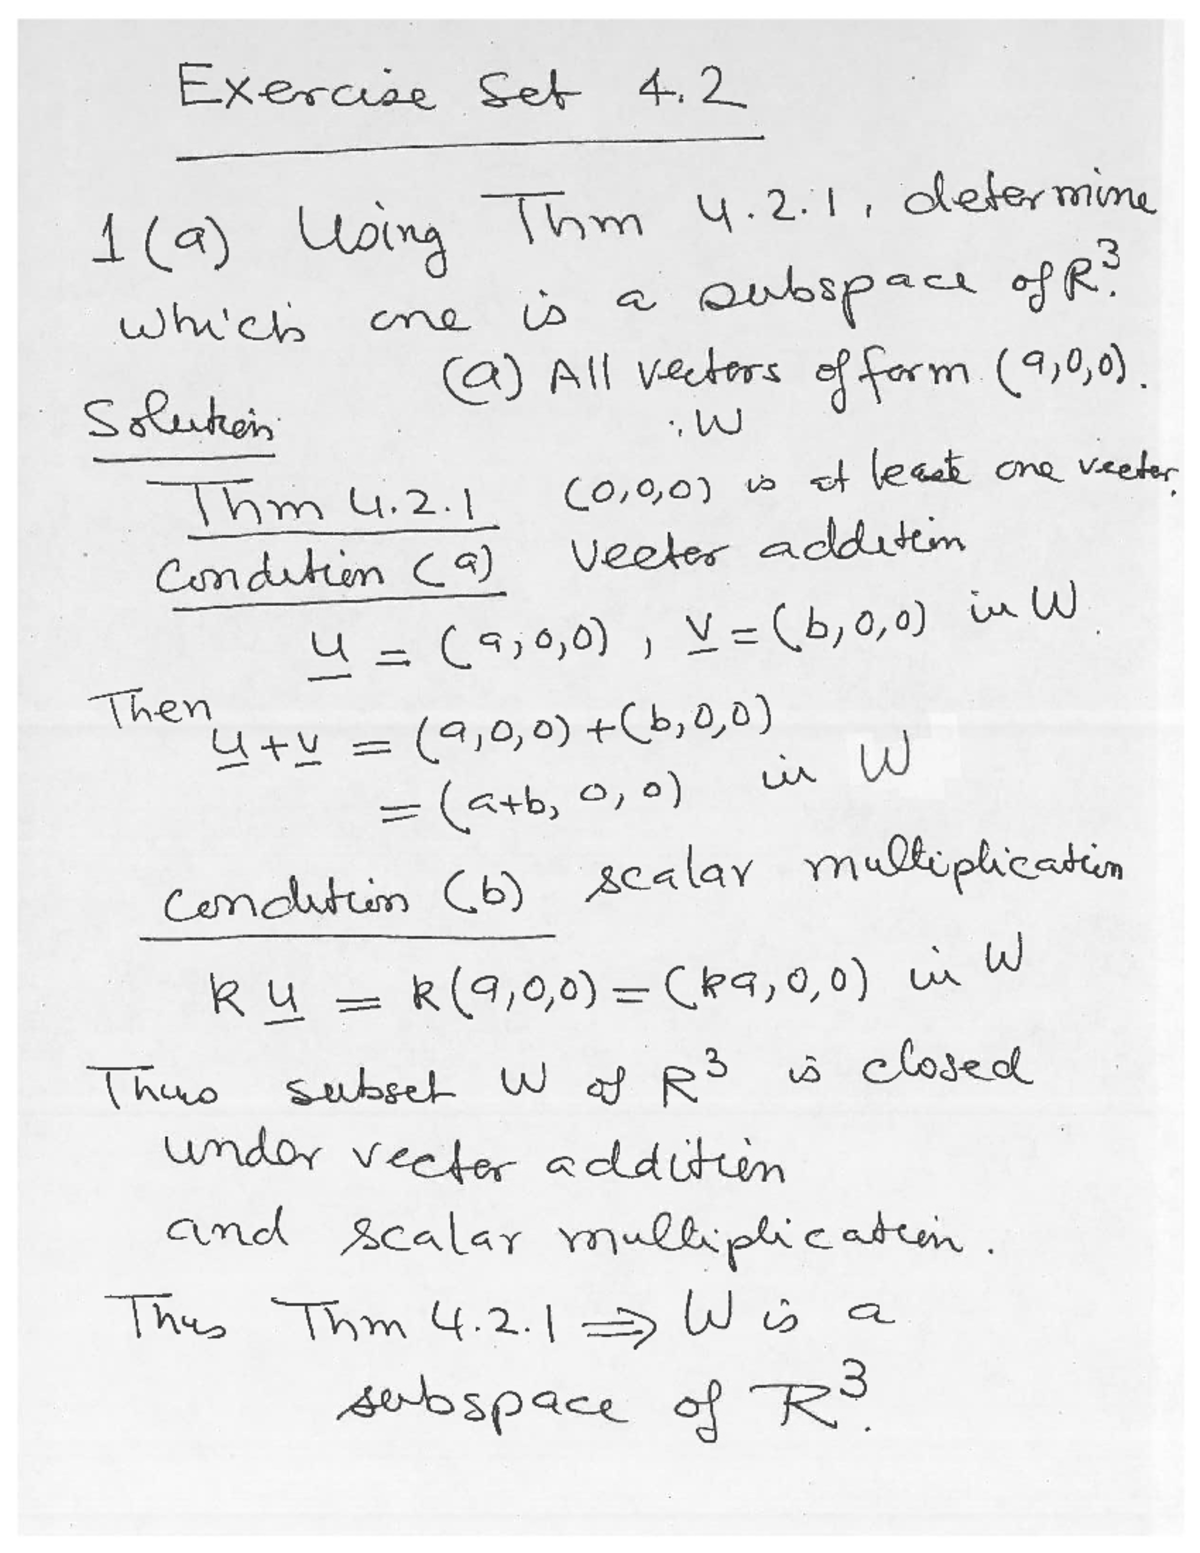 Exercise Set 4.2
1(a) Using Thm 4.2.1, determine
which one is a subspace of R³?
(a) All vectors of form (a,0,0).
: W
Solution
Thm 4.2.1 (0,0,0) is at least one vector.
Condition (a) Vector addition
u = (a,0,0), v = (b,0,0) in W.
Then
u+v = (a,0,0)+(b,0,0)
= (a+b, 0, 0) in W
Condition (b) scalar multiplication
k u = k(a,0,0) = (ka,0,0) in W
Thus subset W of R³ is closed
under vector addition
and scalar multiplication.
Thus Thm 4.2.1 ⇒ W is a
subspace of R³.